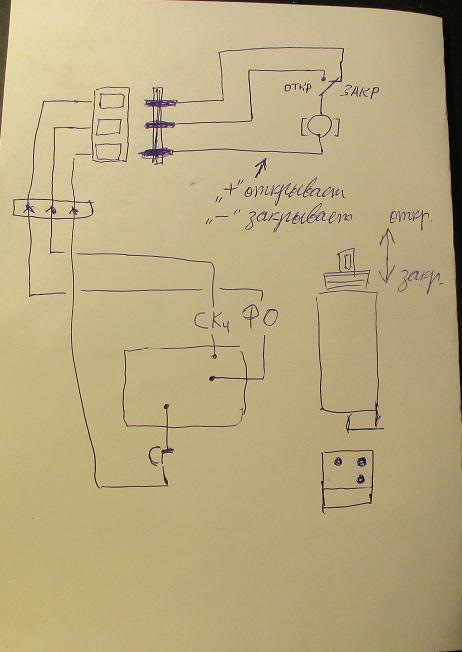 ОТКР ЗАКР
„+“ открывает
„−“ закрывает
откр.
закр.
СКч ФО
С